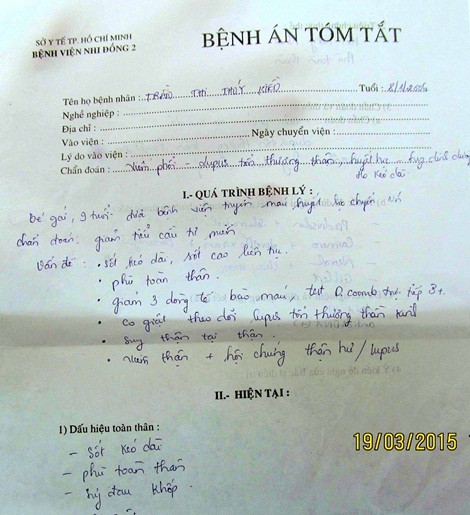 SỞ Y TẾ TP. HỒ CHÍ MINH
BỆNH VIỆN NHI ĐỒNG 2
BỆNH ÁN TÓM TẮT
Tên họ bệnh nhân : TRẦN THỊ THÚY KIỀU Tuổi :
Nghề nghiệp :
Địa chỉ :
Vào viện : Ngày chuyển viện :
Lý do vào viện :
Chẩn đoán : Viêm phổi - Lupus tổn thương thận, huyết học
kéo dài
I.- QUÁ TRÌNH BỆNH LÝ :
Bé gái, 9 tuổi bệnh viện truyền máu huyết học chuyển với
chẩn đoán: giảm tiểu cầu tự miễn
Vấn đề : . sốt kéo dài, sốt cao liên tục.
. phù toàn thân.
. giảm 3 dòng tế bào máu, test D. coomb trực tiếp 3+.
. co giật theo dõi lupus tổn thương thần kinh
. Suy thận tại thận.
. Viêm thận + hội chứng thận hư / lupus
II.- HIỆN TẠI :
1) Dấu hiệu toàn thân :
- Sốt kéo dài
- phù toàn thân
- đau khớp.
19/03/2015